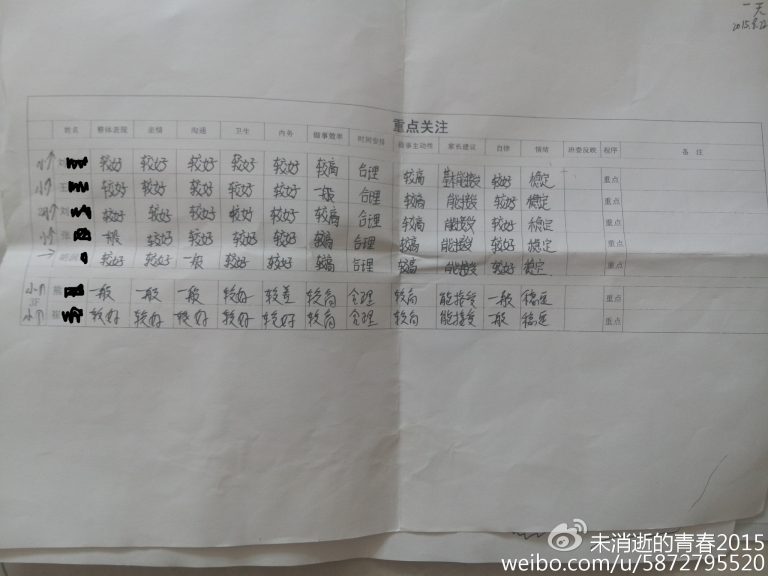 一天
重点关注
姓名 整体表现 亲情 沟通 卫生 内务 做事效率 时间安排 做事主动性 家长建议 自修 情绪 班委反映 程序 备注
小↑ 刘 较好 较好 较好 较好 较好 较高 合理 较高 基本能接受 较好 稳定 重点
小↑ 王 较好 较好 较好 较好 较好 一般 合理 较高 能接受 较好 稳定 重点
刘 较好 较好 较好 较好 较好 较高 合理 较高 能接受 较好 稳定 重点
小↑ 张 一般 较好 较好 较好 较好 较高 合理 较高 能接受 较好 稳定 重点
→ 较好 较好 一般 较好 较好 较高 合理 较高 能接受 较好 稳定 重点
小↑ 一般 一般 一般 较好 较差 较高 合理 较高 能接受 一般 稳定 重点
小↑ 崔 较好 较好 较好 较好 较好 较高 合理 较高 能接受 一般 稳定 重点
未消逝的青春2015
weibo.com/u/5872795520